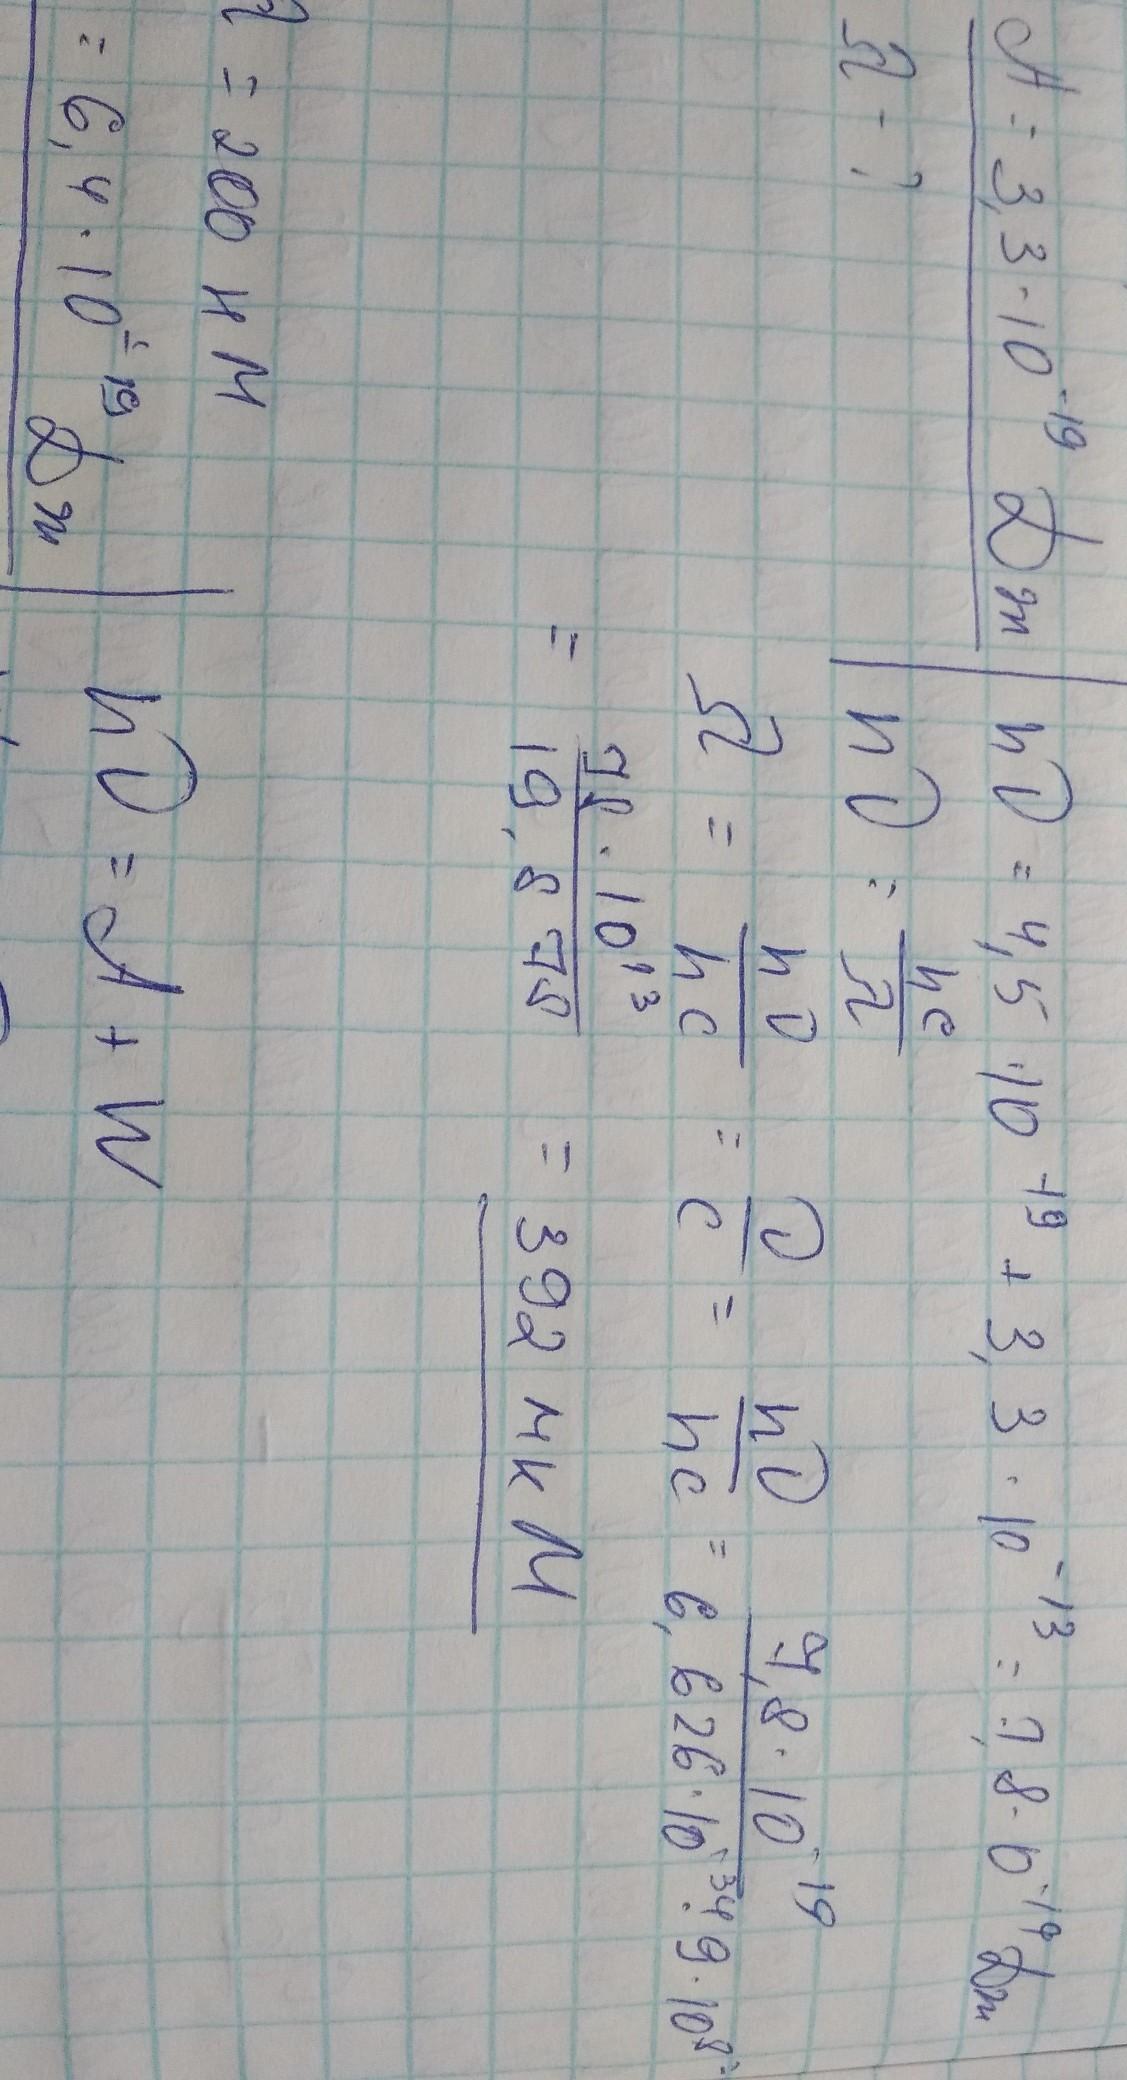 A = 3,3 · 10⁻¹⁹ Дж
λ - ?
hν = 4,5 · 10⁻¹⁹ + 3,3 · 10⁻¹³ = 7,8 · 10⁻¹⁹ Дж
hν = hc/λ
λ = hν/hc = ν/c = hν/hc = 7,8 · 10⁻¹⁹ / 6,626 · 10⁻³⁴ · 9 · 10⁸
= 78 · 10¹³ / 19,878 = 392 мкм
λ = 200 нм
= 6,4 · 10⁻¹⁹ Дж
hν = A + W